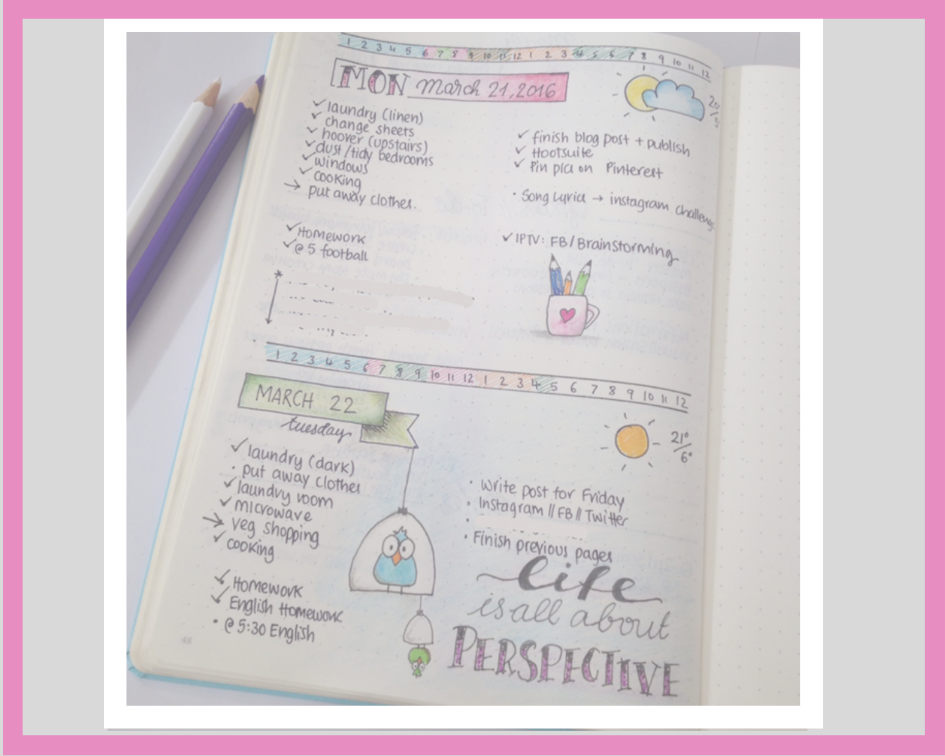 1 2 3 4 5 6 7 8 9 10 11 12 1 2 3 4 5 6 7 8 9 10 11 12
MON March 21, 2016
✓ laundry (linen)
✓ change sheets
✓ hoover (upstairs)
✓ dust/tidy bedrooms
✓ windows
✓ cooking
→ put away clothes.
✓ Homework
✓ @ 5 football
✓ finish blog post + publish
✓ Hootsuite
✓ Pin pics on Pinterest
· Song Lyrics → instagram challenge
✓ IPTV: FB/Brainstorming
1 2 3 4 5 6 7 8 9 10 11 12 1 2 3 4 5 6 7 8 9 10 11 12
MARCH 22
tuesday
21°
6°
✓ laundry (dark)
· put away clothes
✓ laundry room
✓ microwave
→ veg shopping
✓ cooking
✓ Homework
✓ English Homework
· @ 5:30 English
· Write post for Friday
· Instagram // FB // Twitter
· Finish previous pages
life
is all about
PERSPECTIVE